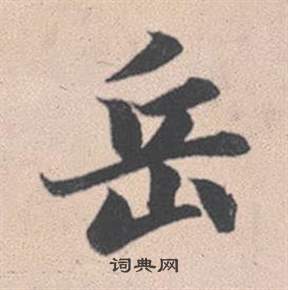 岳
词典网